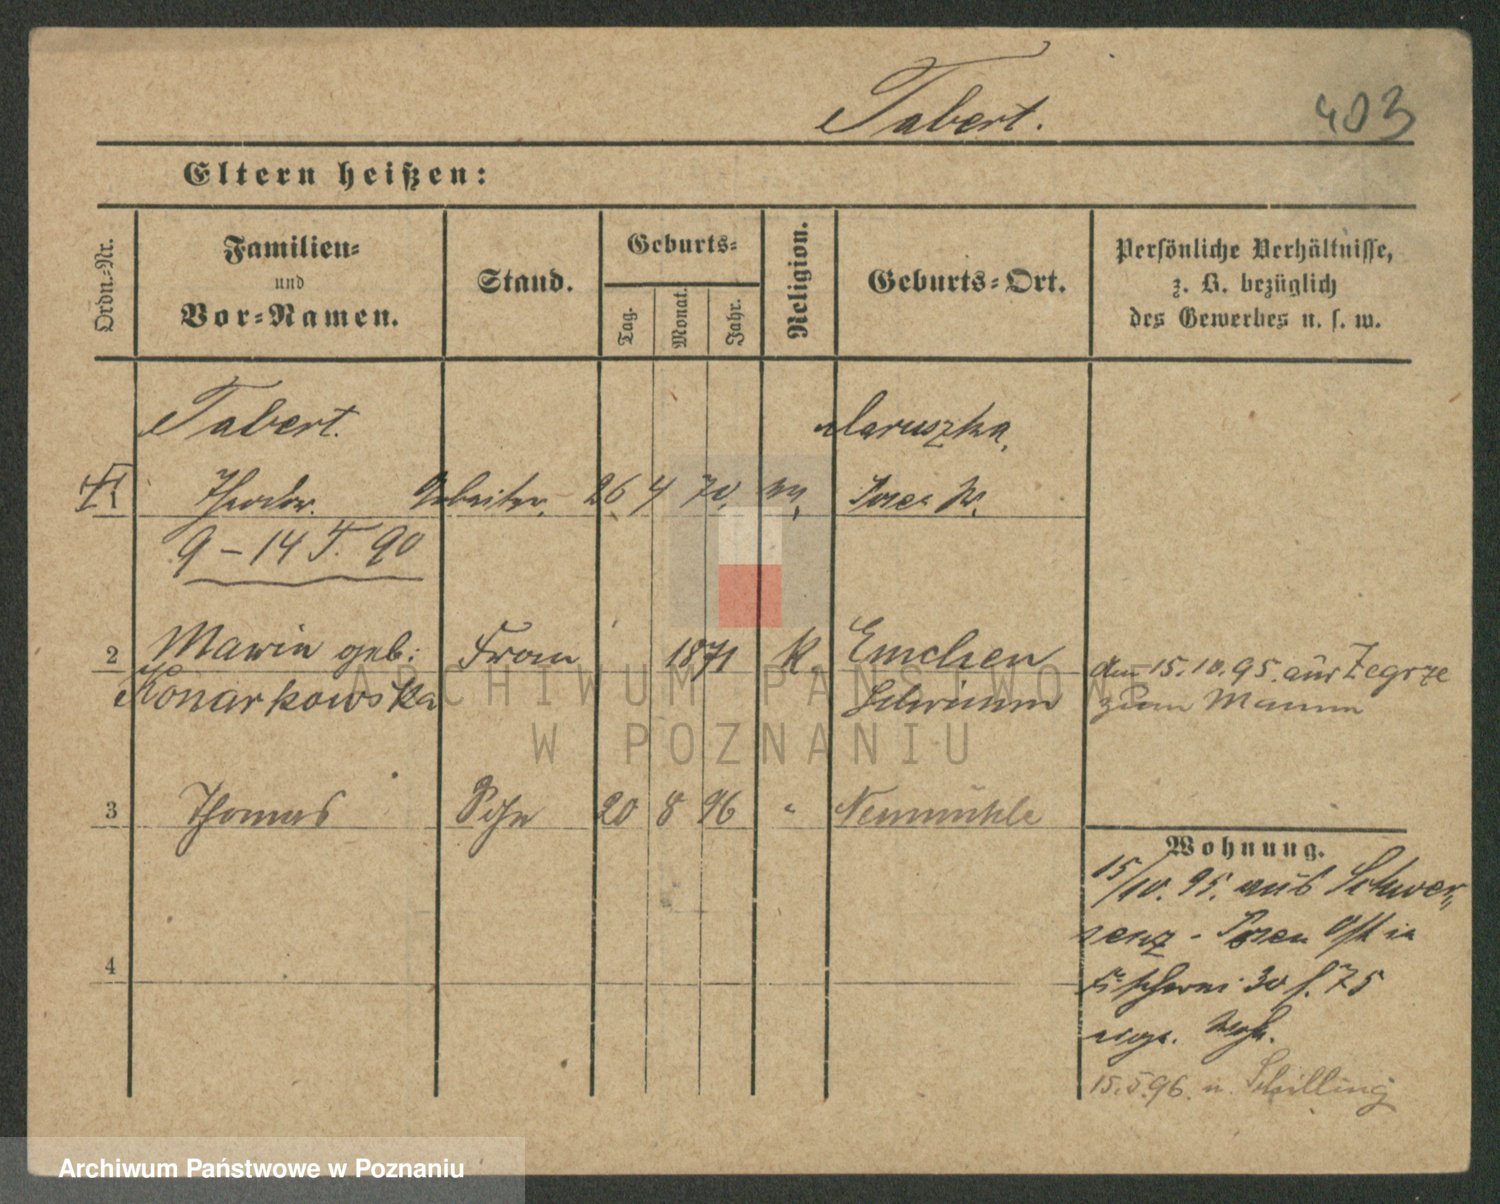 Tabert. 403
Eltern heißen:
Ordn.-Nr.
Familien- und Vor-Namen.
Stand.
Geburts-
Tag. Monat. Jahr.
Religion.
Geburts-Ort.
Persönliche Verhältnisse,
z. B. bezüglich
des Gewerbes u. s. w.
Tabert. Maruszka,
Theodor. Arbeiter. 26 4 70. Posen W.
9-14 T. 90
2 Maria geb: Frau 1871 k. Emchen
Konarkowska Schrimm
den 15.10.95 aus Zegrze
zum Mann
3 Thomas Sohn 20 8 96 " Neumühle
4
Wohnung.
15/10.95. aus Schwer-
senz - Posen Ost in
Fischerei 30 f. 75
15.5.96. n. Schilling
ARCHIWUM PAŃSTWOWE
W POZNANIU
Archiwum Państwowe w Poznaniu